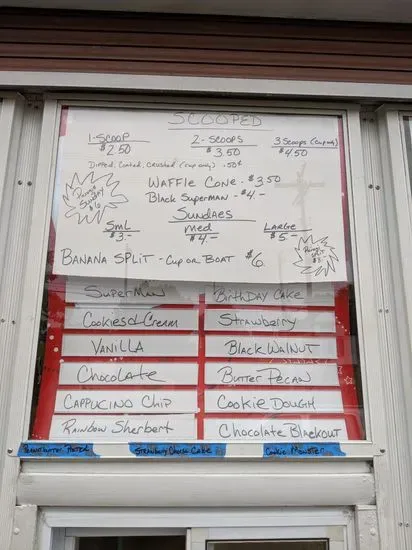 SCOOPED
1-SCOOP 2-SCOOPS 3 SCOOPS (CUP ONLY)
$2.50 $3.50 $4.50
DIPPED, COATED, CRUSHED (CUP ONLY) .50¢
WAFFLE CONE - $3.50
BLACK SUPERMAN - $4.-
SUNDAES
SML MED LARGE
$3.- $4.- $5.-
BANANA SPLIT - CUP OR BOAT $6.
SUPERMAN BIRTHDAY CAKE
COOKIES & CREAM STRAWBERRY
VANILLA BLACK WALNUT
CHOCOLATE BUTTER PECAN
CAPPUCINO CHIP COOKIE DOUGH
RAINBOW SHERBERT CHOCOLATE BLACKOUT
STRAWBERRY CHEESE CAKE COOKIE MONSTER